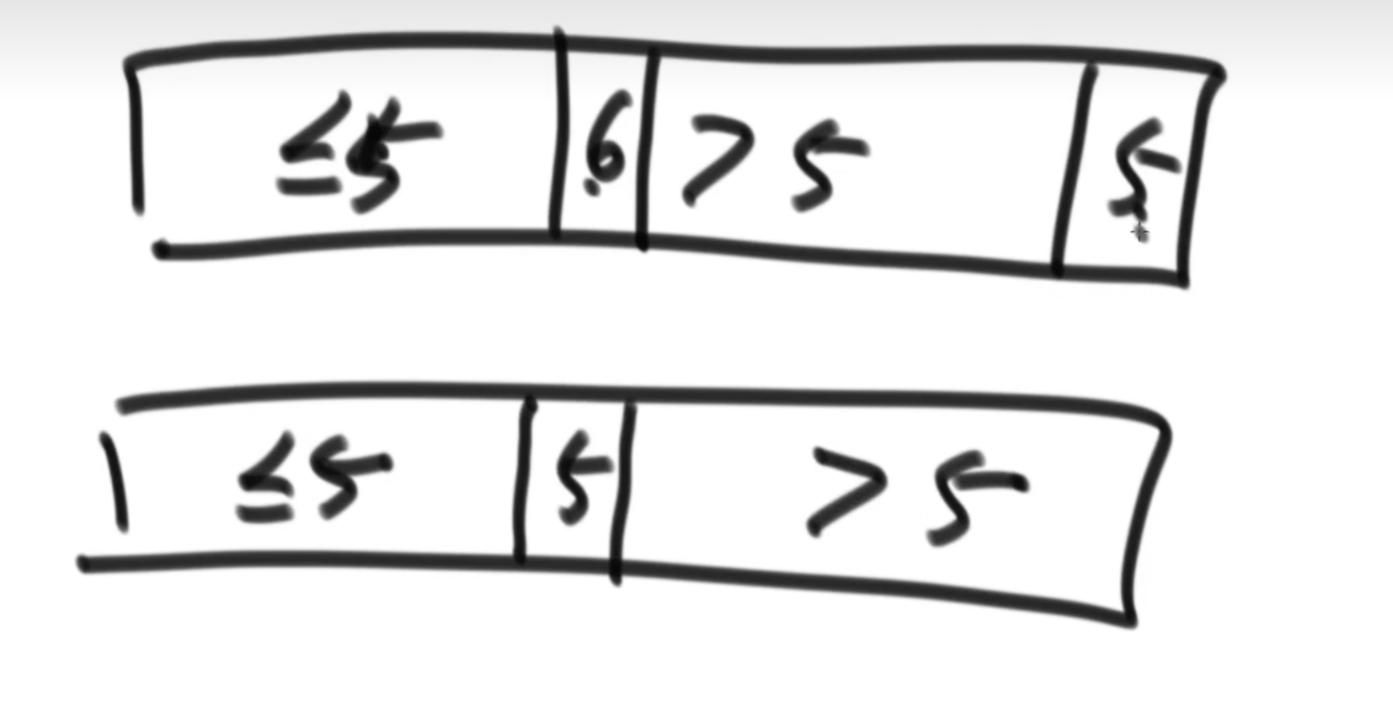 ≤5 6 > 5 5
≤5 5 > 5